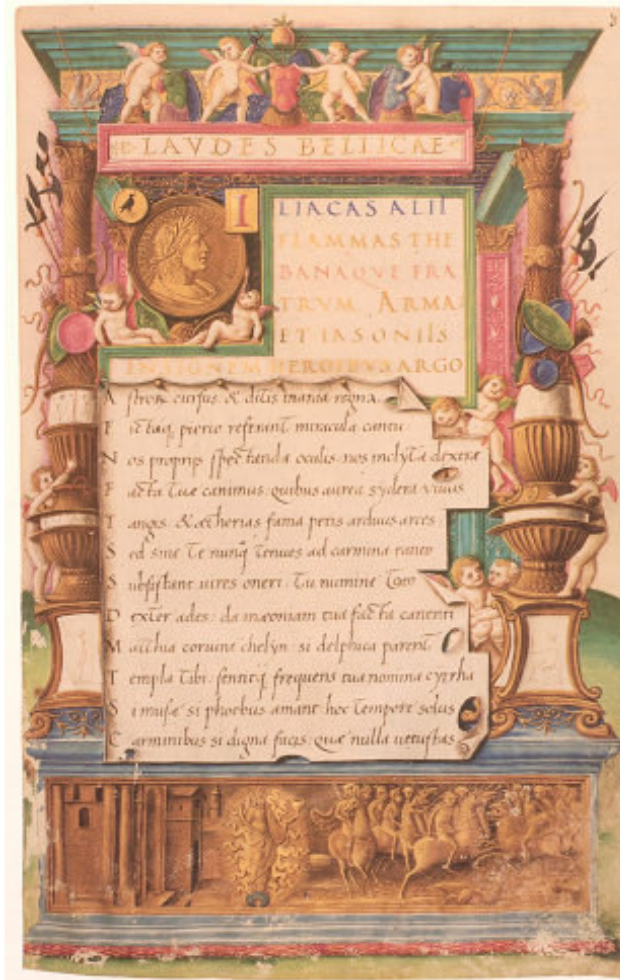 LAVDES BELLICAE
ILIACAS ALII
FLAMMAS THE
BANAQVE FRA
TRVM ARMA
ET IASONIIS
INSIGNEM HEROIBVS ARGO
A strorꝝ cursus & ditis inania regna
F ictaq; pierio referant miracula cantu
N os proprijs spectanda oculis nos inclyta dextræ
F acta tuæ canimus quibus aurea sydera viuus
T angis & ætherias fama petis arduus arces
S ed sine te nunq̃ tenues ad carmina
S ubsistant uires oneri Tu numine
D exter ades: da mæoniam tua facta canenti
M atthia coruine chelyn si delphica parent
T empla tibi: sentitq; frequens tua nomina cyrrha
S i musæ si phoebus amant hoc tempore solus
C arminibus si digna facis quæ nulla uetustas